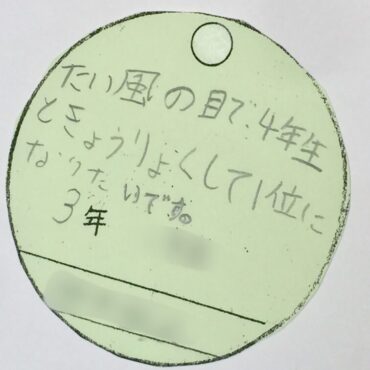 たい風の目で、4年生
ときょうりょくして1位に
なりたいです。
3年